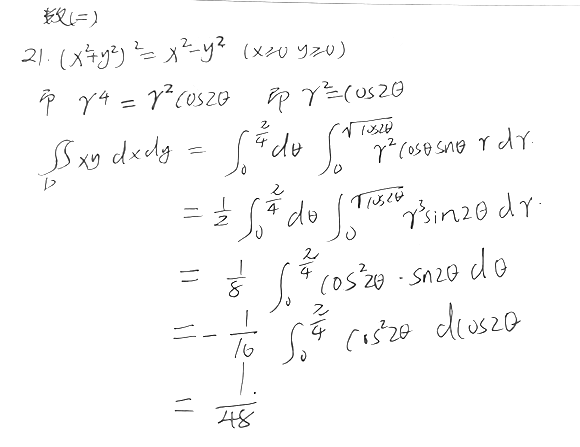 数(二)
21. (x²+y²)² = x²-y² (x≥0 y≥0)
即 γ⁴ = γ²cos2θ 即 γ²=cos2θ
∬_D xy dxdy = ∫₀^(π/4) dθ ∫₀^√cos2θ γ²cosθsinθ r dr.
= 1/2 ∫₀^(π/4) dθ ∫₀^√cos2θ γ³sin2θ dr.
= 1/8 ∫₀^(π/4) cos²2θ · sin2θ dθ
= - 1/16 ∫₀^(π/4) cos²2θ dcos2θ
= 1/48